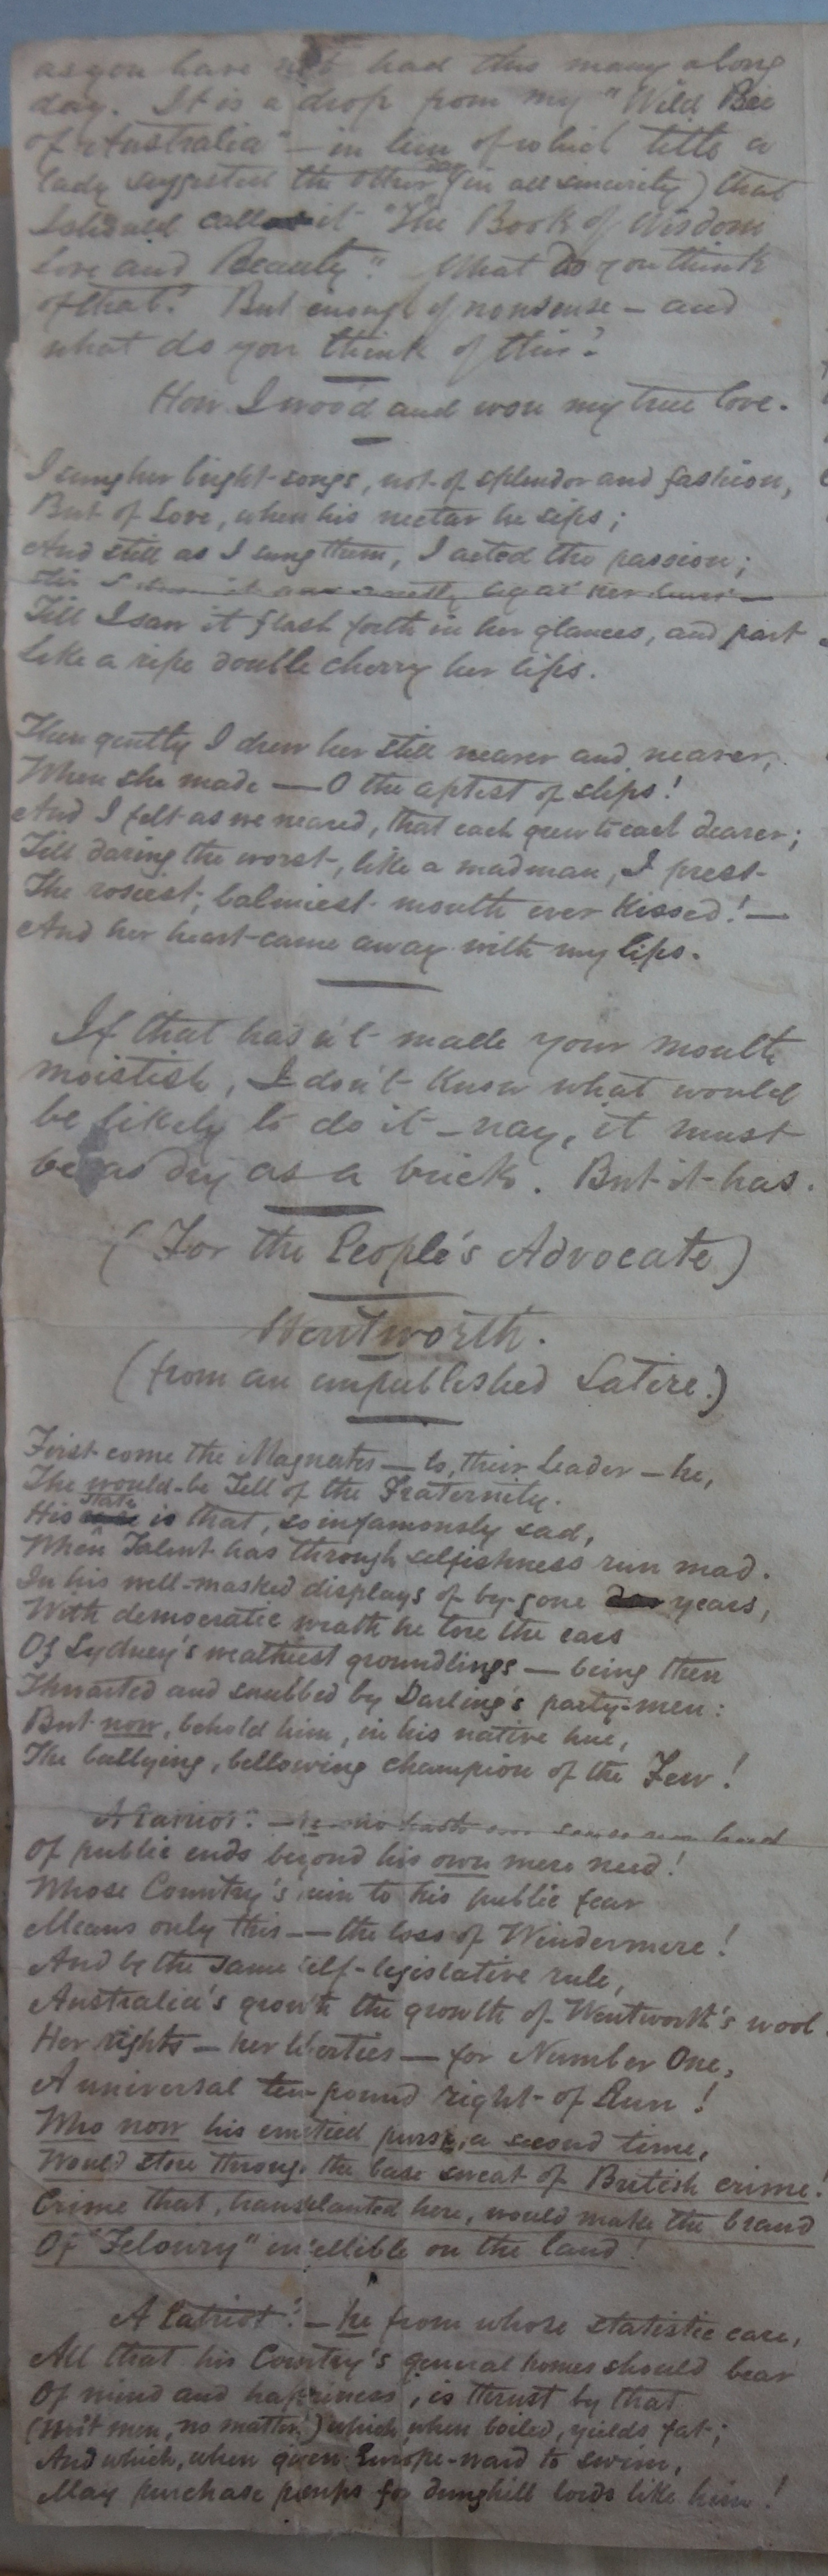 as you have not had this many a long
day. It is a drop from my "Wild Bee
of Australia" — in lieu of which title a
lady suggested the other day (in all sincerity) that
I should call it "The Book of Wisdom
Love and Beauty." What do you think
of that? But enough of nonsense — and
what do you think of this?
How I woo'd and won my true love.
I sung her bright songs, not of splendor and fashion,
But of Love, when his nectar he sips;
And still as I sung them, I acted the passion;
Till I saw it flash forth in her glances, and part
Like a ripe double cherry her lips.
Then gently I drew her still nearer and nearer,
When she made — O the aptest of slips!
And I felt as we neared, that each grew to each dearer;
Till daring the worst, like a madman, I prest
The rosiest, balmiest mouth ever kissed! —
And her heart came away with my lips.
If that has n't made your mouth
moistish, I don't know what would
be likely to do it — nay, it must
be as dry as a brick. But it has.
(For the People's Advocate)
Wentworth.
(from an unpublished Satire.)
First come the Magnates — lo, their Leader — he,
The would-be Tell of the Fraternity.
His state is that, so infamously sad,
When Talent has through selfishness run mad.
In his well-masked displays of by-gone years,
With democratic wrath he tore the ears
Of Sydney's wealthiest groundlings — being then
Thwarted and snubbed by Darling's party-men:
But now, behold him, in his native hue,
The bullying, bellowing champion of the Few!
A Patriot! — he who
Of public ends beyond his own mere need!
Whose Country's ruin to his public fear
Means only this — the loss of Windermere!
And by the same self-legislative rule,
Australia's growth the growth of Wentworth's wool.
Her rights — her liberties — for Number One,
A universal ten-pound right of Run!
Who now his emptied purse, a second time,
Would store through the base sweat of British crime!
Crime that, transplanted here, would make the brand
Of "Felonry" indellible on the land!
A Patriot! — he from whose statistic care,
All that his Country's general homes should bear
Of mind and happiness, is thrust by that
(Melt men, no matter!) which when boiled, yields fat;
And which, when given Europe-ward to swim,
May purchase pomps for dunghill lords like him!